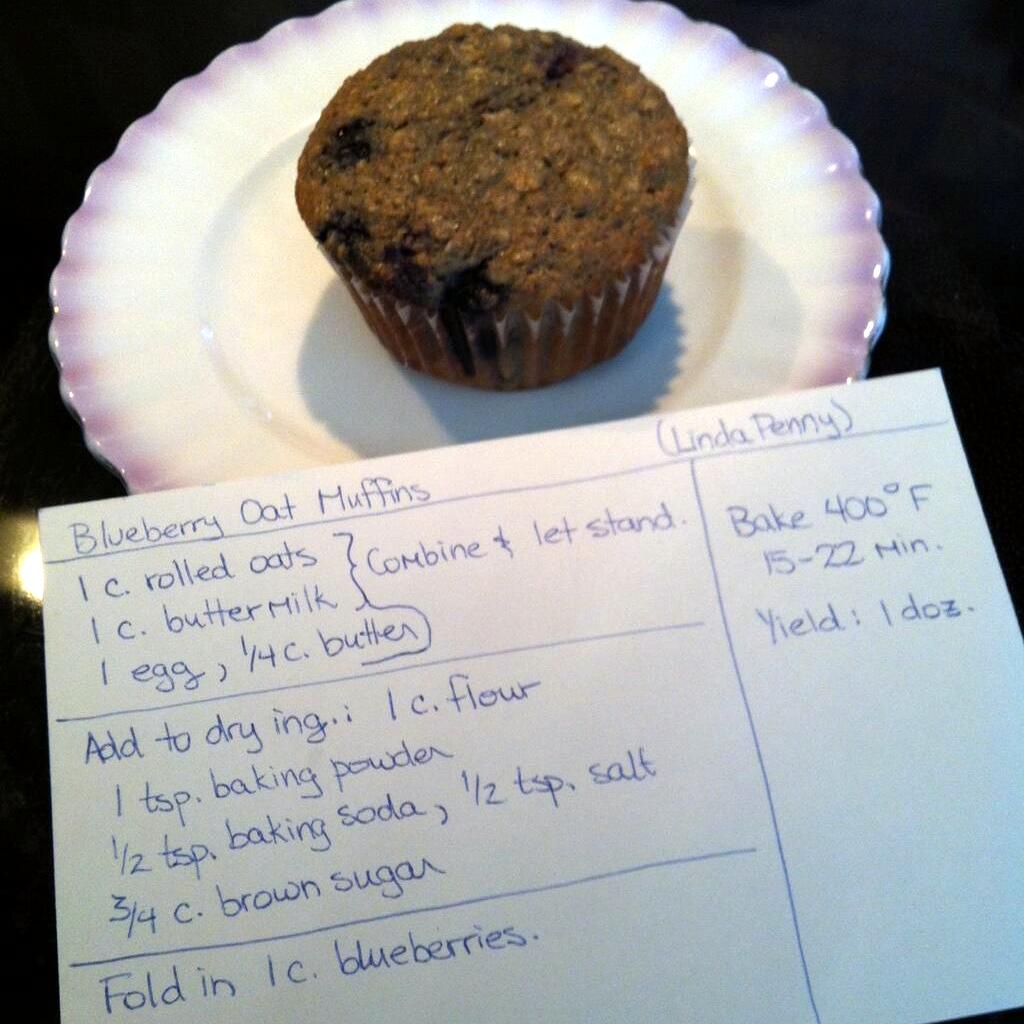 Blueberry Oat Muffins (Linda Penny)
1 c. rolled oats
1 c. buttermilk
1 egg, 1/4 c. butter
Combine & let stand.
Add to dry ing.: 1 c. flour
1 tsp. baking powder
1/2 tsp. baking soda, 1/2 tsp. salt
3/4 c. brown sugar
Fold in 1 c. blueberries.
Bake 400°F
15-22 min.
Yield: 1 doz.